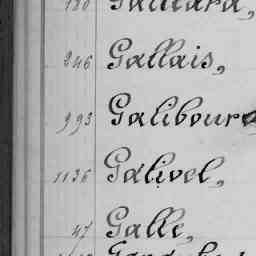 246 Gallais,
993 Galibour
1136 Galivel,
47 Galle,